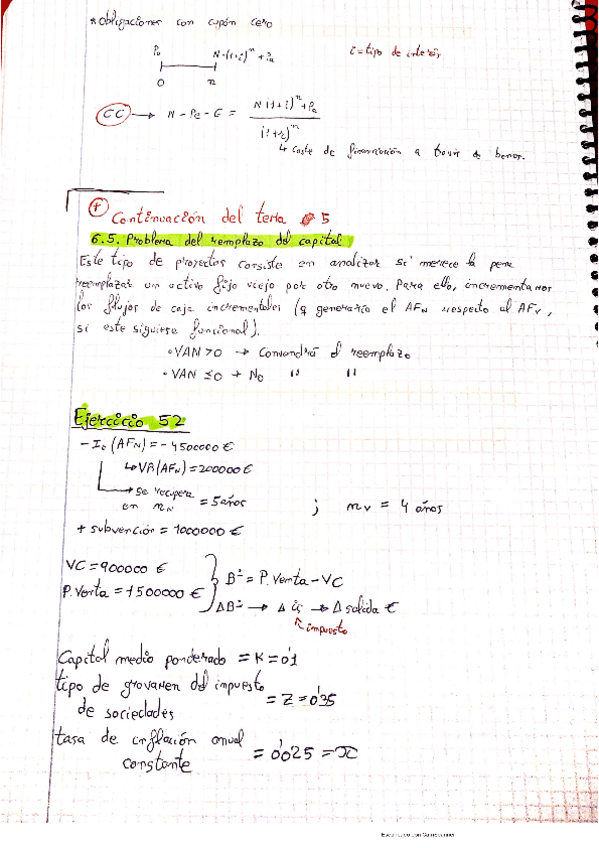 * Obligaciones con cupón cero
Po N·(1+i)^n + Pa i = tipo de interés
0 n
CC → N - Pe - G = N(1+i)^n + Pa / (1+r)^n
↳ coste de financiación a través de bonos.
+ Continuación del tema 5
6.5. Problema del remplazo del capital
Este tipo de proyectos consiste en analizar si merece la pena
reemplazar un activo fijo viejo por otro nuevo. Para ello, incrementamos
los flujos de caja incrementales (q generaría el AFN respecto al AFV,
si este siguiese funcional).
• VAN > 0 → Convendría el reemplazo
• VAN ≤ 0 → No " "
Ejercicio 52
- Io (AFN) = - 4500000 €
↳ VR (AFN) = 200000 €
→ se recupera en nN = 5 años ; nV = 4 años
+ subvención = 1000000 €
VC = 900000 €
P. Venta = 1500000 €
Bº = P. Venta - VC
ΔBº → Δ is → Δ salida €
↖ impuesto
Capital medio ponderado = K = 0'1
tipo de gravamen del impuesto
de sociedades = Z = 0'35
tasa de inflación anual
constante = 0'025 = π
Escaneado con CamScanner